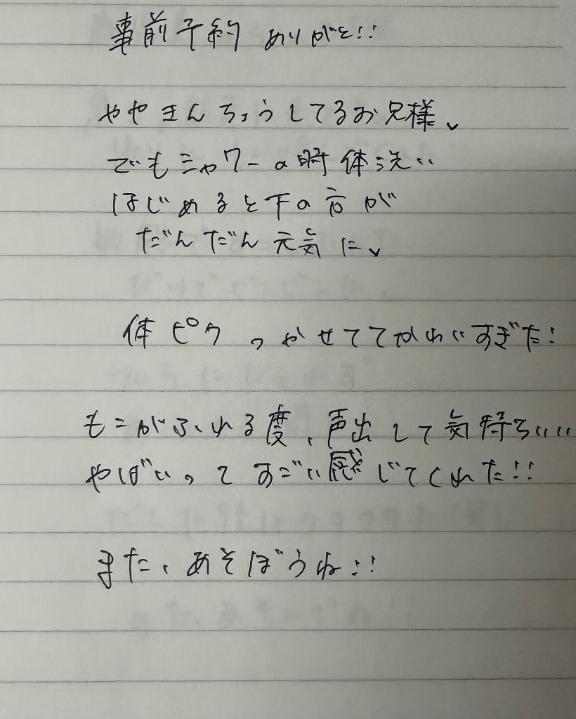 事前予約 ありがと!!
ややきんちょうしてるお兄様、
でもシャワーの時体洗い
はじめると下の方が
だんだん元気に、
体ピクつかせててかわいすぎた!
もこがふれる度、声出して気持ちいい
やばいってすごい感じてくれた!!
また、あそぼうね!!